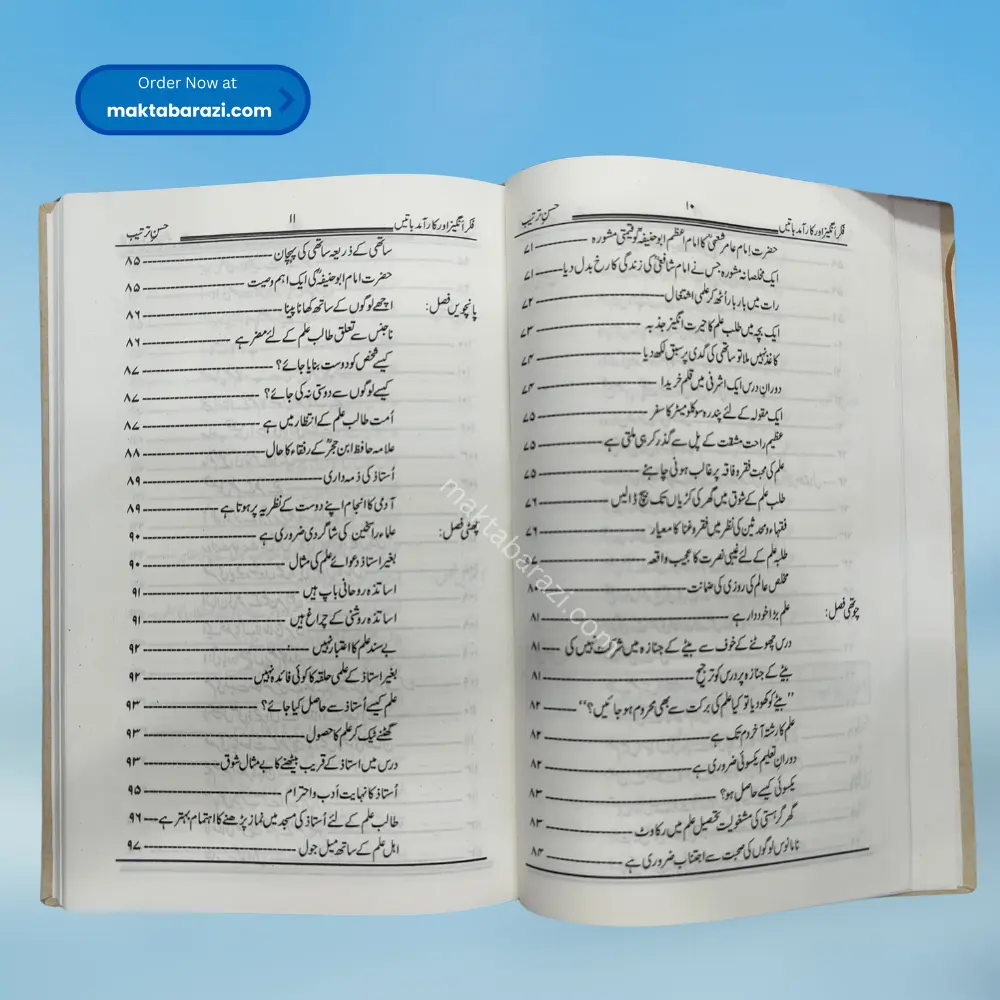 Order Now at
maktabarazi.com
فکر انگیز اور کار آمد باتیں ۱۰ حسنِ ترتیب
حضرت امام عامر شعبیؒ کا امام اعظم ابو حنیفہؒ کو قیمتی مشورہ ۷۱
ایک مخلصانہ مشورہ جس نے امام شافعیؒ کی زندگی کا رخ بدل دیا ۷۱
رات میں بار بار اُٹھ کر علمی اشتغال ۷۲
ایک بچہ میں طلب علم کا حیرت انگیز جذبہ ۷۳
کاغذ نہیں ملا تو ساتھی کی گدی پر سبق لکھ دیا ۷۴
دورانِ درس ایک اشرفی میں قلم خریدا ۷۴
ایک مقولہ کے لئے پندرہ سو کلومیٹر کا سفر ۷۵
عظیم راحت مشقت کے پل سے گذر کر ہی ملتی ہے ۷۵
علم کی محبت فقر و فاقہ پر غالب ہونی چاہئے ۷۵
طلب علم کے شوق میں گھر کی کڑیاں تک بیچ ڈالیں ۷۶
فقہاء ومحدثین کی نظر میں فقر وغنا کا معیار ۷۶
طلبۂ علم کے لئے غیبی نصرت کا عجیب واقعہ
مخلص عالم کی روزی کی ضمانت ۸۰
چوتھی فصل: علم بڑا خوددار ہے ۸۱
درس چھوٹنے کے خوف سے بیٹے کے جنازہ میں شرکت نہیں کی ۸۱
بیٹے کے جنازہ پر درس کو ترجیح ۸۱
’’بیٹے کو کھو دیا تو کیا علم کی برکت سے بھی محروم ہو جائیں؟‘‘ ۸۲
علم کا رشتہ آخر دم تک ہے ۸۲
دورانِ تعلیم یکسوئی ضروری ہے ۸۲
یکسوئی کیسے حاصل ہو؟ ۸۳
گھر گرہستی کی مشغولیت تحصیل علم میں رکاوٹ ۸۳
نامانوس لوگوں کی صحبت سے اجتناب ضروری ہے ۸۴
فکر انگیز اور کار آمد باتیں ۱۱ حسنِ ترتیب
ساتھی کے ذریعہ ساتھی کی پہچان ۸۵
حضرت امام ابو حنیفہؒ کی ایک اہم وصیت ۸۵
پانچویں فصل: اچھے لوگوں کے ساتھ کھانا پینا ۸۶
ناجنس سے تعلق طالب علم کے لئے مضر ہے ۸۶
کیسے شخص کو دوست بنایا جائے؟ ۸۷
کیسے لوگوں سے دوستی نہ کی جائے؟ ۸۷
اُمت طالب علم کے انتظار میں ہے ۸۷
علامہ حافظ ابن حجرؒ کے رفقاء کا حال ۸۸
اُستاذ کی ذمہ داری ۸۹
آدمی کا انجام اپنے دوست کے نظریہ پر ہوتا ہے ۸۹
چھٹی فصل: علماء راسخین کی شاگردی ضروری ہے ۹۰
بغیر استاذ دعوائے علم کی مثال ۹۰
اساتذہ روحانی باپ ہیں ۹۱
اساتذہ روشنی کے چراغ ہیں ۹۱
بے سند علم کا اعتبار نہیں ۹۲
بغیر استاذ کے علمی حلقہ کا کوئی فائدہ نہیں ۹۲
علم کیسے اُستاذ سے حاصل کیا جائے؟ ۹۳
گھٹنے ٹیک کر علم کا حصول ۹۳
درس میں استاذ کے قریب بیٹھنے کا بے مثال شوق ۹۳
اُستاذ کا نہایت اَدب واحترام ۹۵
طالب علم کے لئے اُستاذ کی مسجد میں نماز پڑھنے کا اہتمام بہتر ہے ۹۶
اہل علم کے ساتھ میل جول ۹۷
maktabarazi.com